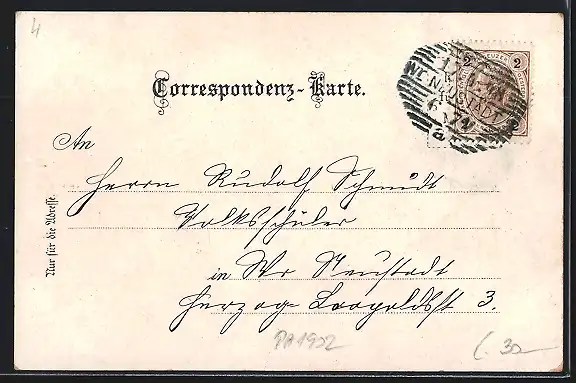 4
Correspondenz-Karte.
2 KREUZER 2
WR. NEUSTADT
a
An
Herrn Rudolf Schmidt
Volksschüler
in Wr Neustadt
Herzog Leopoldsst 3.
Nur für die Adresse.
PA1902